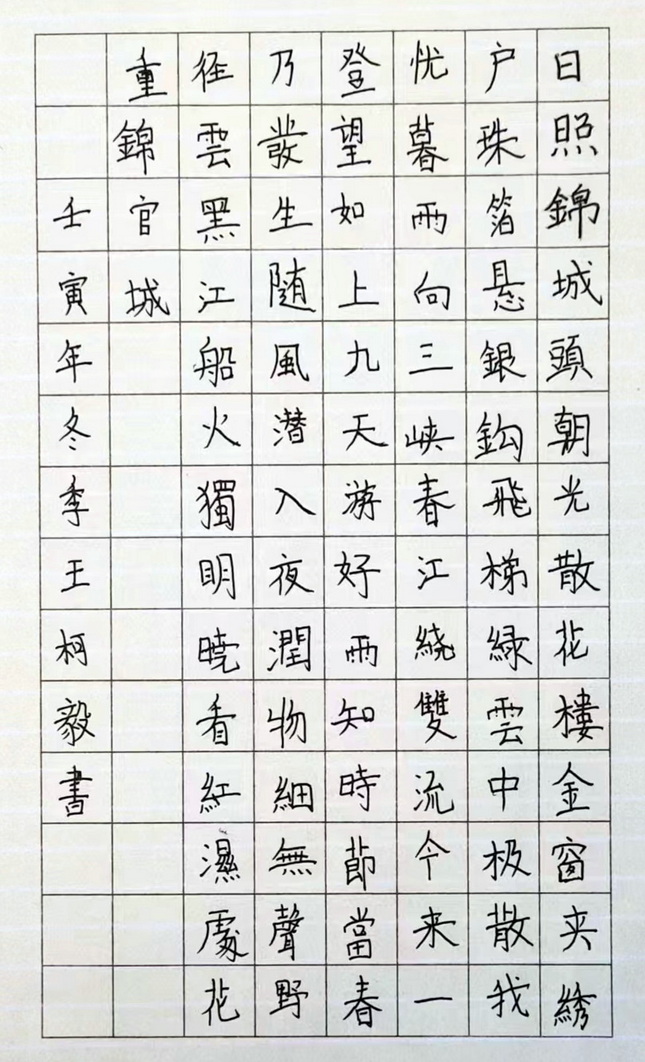 日照錦城頭朝光散花樓金窗夾綉
户珠箔悬銀鈎飛梯緑雲中极散我
忧暮雨向三峡春江繞雙流今来一
登望如上九天游好雨知時節當春
乃發生随風潜入夜潤物細無聲野
径雲黑江船火獨明曉看紅濕處花
重錦官城
壬寅年冬季王柯毅書